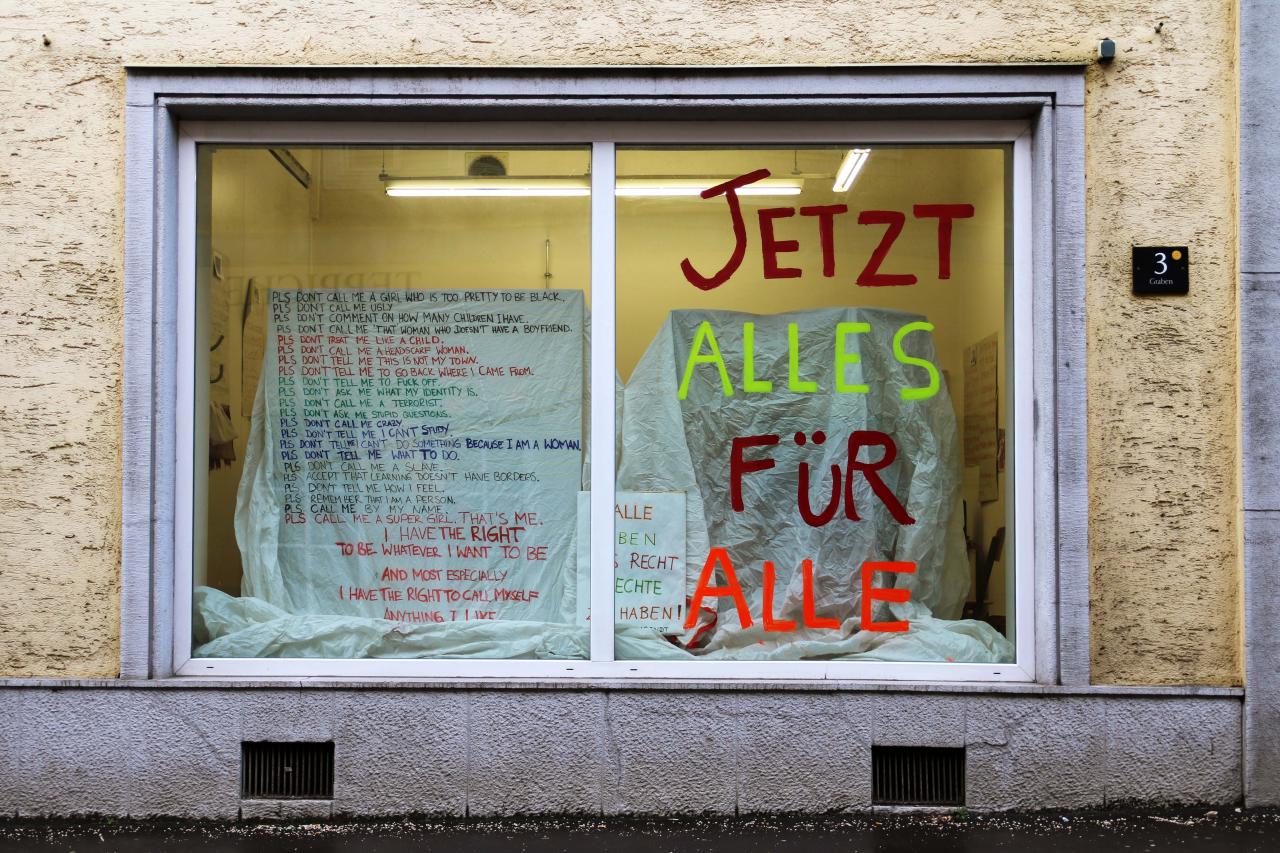 PLS DON'T CALL ME A GIRL WHO IS TOO PRETTY TO BE BLACK..
PLS DON'T CALL ME UGLY
PLS DON'T COMMENT ON HOW MANY CHILDREN I HAVE.
PLS DON'T CALL ME 'THAT WOMAN WHO DOESN'T HAVE A BOYFRIEND.
PLS DON'T TREAT ME LIKE A CHILD.
PLS DON'T CALL ME A HEADSCARF WOMAN.
PLS DON'T TELL ME THIS IS NOT MY TOWN.
PLS DON'T TELL ME TO GO BACK WHERE I CAME FROM.
PLS DON'T TELL ME TO FUCK OFF.
PLS DON'T ASK ME WHAT MY IDENTITY IS.
PLS DON'T CALL ME A TERRORIST.
PLS DON'T ASK ME STUPID QUESTIONS.
PLS DON'T CALL ME CRAZY
PLS DON'T TELL ME I CAN'T STUDY.
PLS DON'T TELL ME I CAN'T DO SOMETHING BECAUSE I AM A WOMAN.
PLS DON'T TELL ME WHAT TO DO.
PLS DON'T CALL ME A SLAVE.
PLS ACCEPT THAT LEARNING DOESN'T HAVE BORDERS.
PLS DON'T TELL ME HOW I FEEL.
PLS REMEMBER THAT I AM A PERSON.
PLS CALL ME BY MY NAME.
PLS CALL ME A SUPER GIRL. THAT'S ME.
I HAVE THE RIGHT
TO BE WHATEVER I WANT TO BE
AND MOST ESPECIALLY
I HAVE THE RIGHT TO CALL MYSELF
ANYTHING I LIKE
ALLE
BEN
S RECHT
ECHTE
HABEN!
JETZT
ALLES
FÜR
ALLE
3
Graben